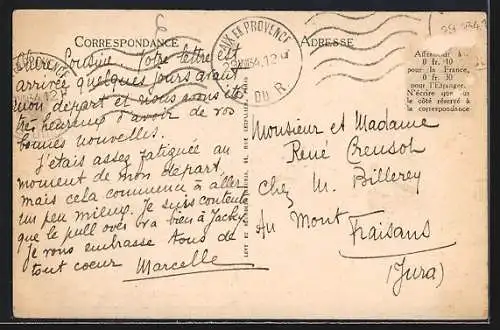 CORRESPONDANCE
ADRESSE
AIX EN PROVENCE
Affranchir à
0 fr. 10
pour la France,
0 fr. 30
pour l'Étranger.
N'écrire que sur
le côté réservé à
la correspondance
Chère Cousine Votre lettre est
arrivée quelques jours avant
mon départ et nous avons été
très heureux d'avoir de vos
bonnes nouvelles.
J'étais assez fatiguée au
moment de mon départ,
mais cela commence à aller
un peu mieux. Je suis contente
que le pull over va bien à Jacky.
Je vous embrasse tous de
tout coeur Marcelle
Monsieur et Madame
René Creusot
chez M. Billerey
au Mont
Fraisans
(Jura)